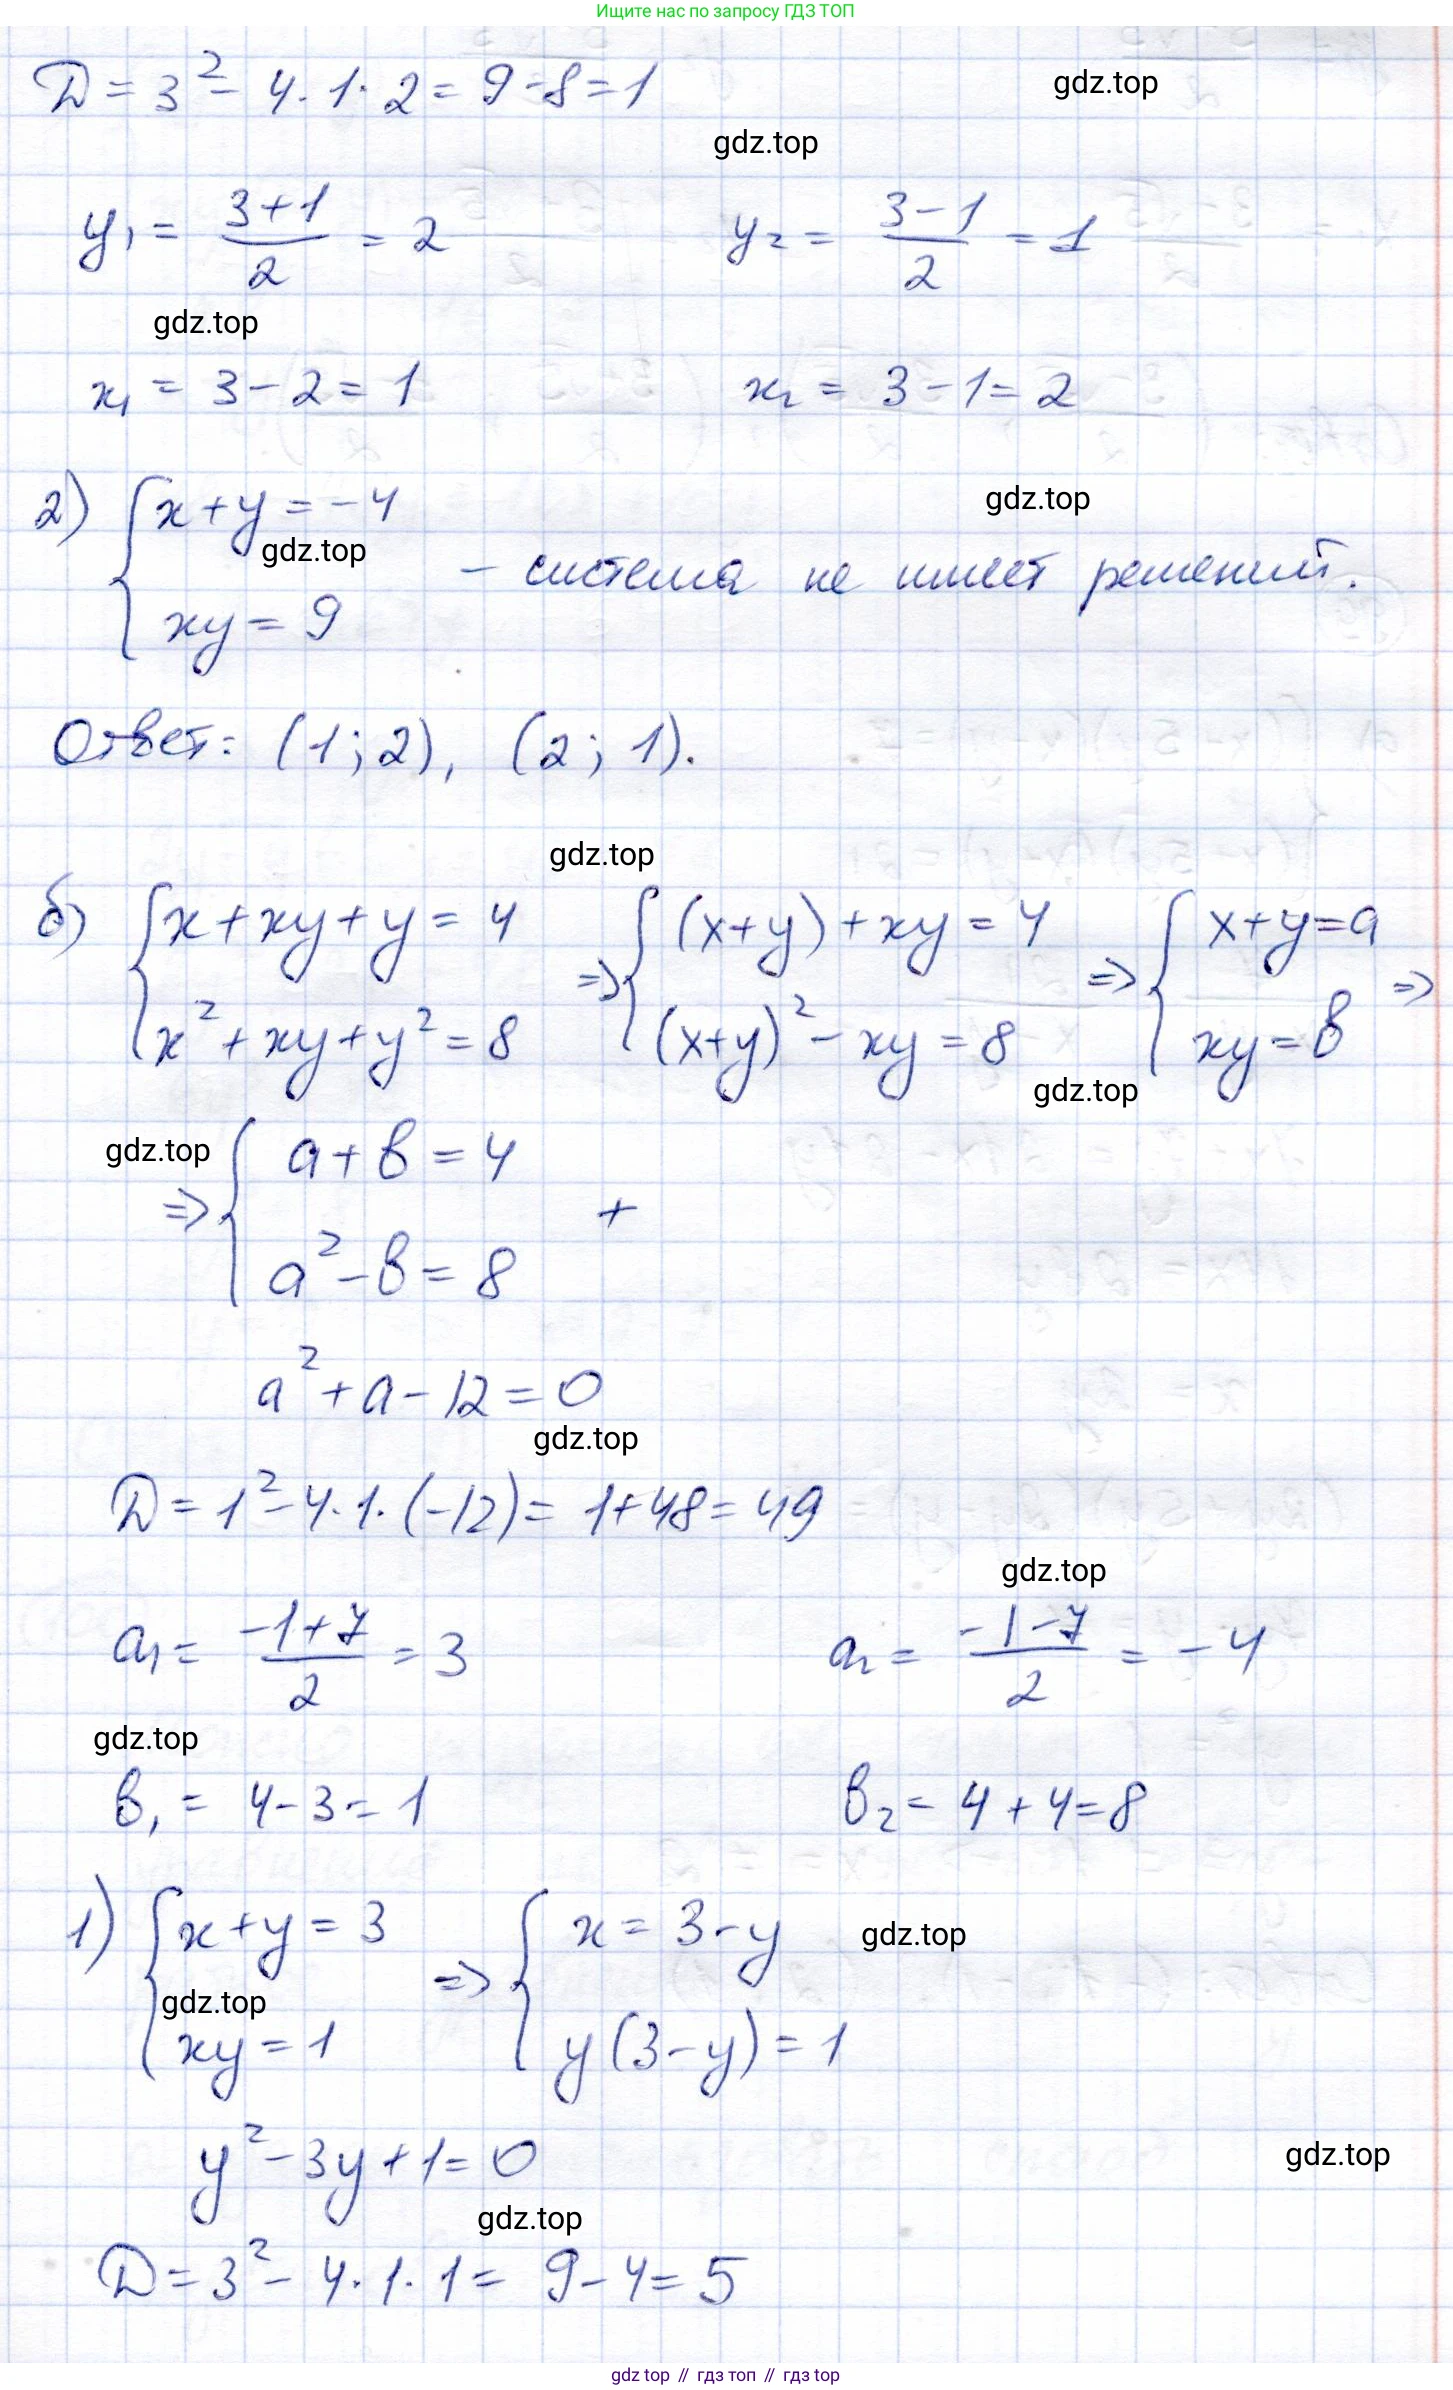 Ищите нас по запросу ГДЗ ТОП
D = 3² - 4 · 1 · 2 = 9 - 8 = 1
gdz.top
gdz.top
y₁ = (3+1)/2 = 2    y₂ = (3-1)/2 = 1
gdz.top
x₁ = 3 - 2 = 1    x₂ = 3 - 1 = 2
2) { x + y = -4
gdz.top
gdz.top
xy = 9 – система не имеет решений.
Ответ: (1; 2), (2; 1).
gdz.top
б) { x + xy + y = 4 => { (x+y) + xy = 4 => { x + y = a =>
x² + xy + y² = 8    (x+y)² - xy = 8    xy = b
gdz.top
gdz.top
=> { a + b = 4 +
a² - b = 8
a² + a - 12 = 0
gdz.top
D = 1² - 4 · 1 · (-12) = 1 + 48 = 49
gdz.top
a₁ = (-1+7)/2 = 3    a₂ = (-1-7)/2 = -4
gdz.top
b₁ = 4 - 3 = 1    b₂ = 4 + 4 = 8
1) { x + y = 3 => { x = 3 - y
gdz.top
gdz.top
xy = 1    y(3 - y) = 1
y² - 3y + 1 = 0
gdz.top
gdz.top
D = 3² - 4 · 1 · 1 = 9 - 4 = 5
gdz top // гдз топ // гдз top